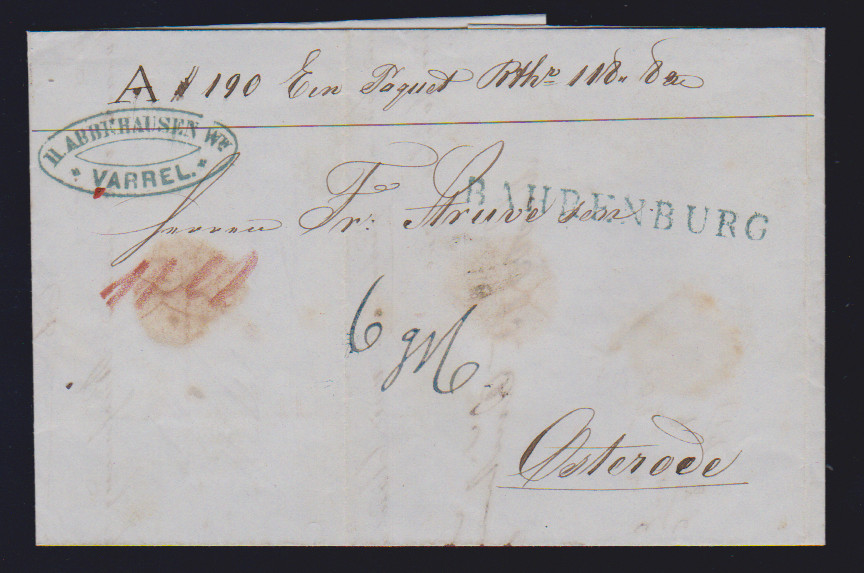 A 190 Ein Paquet Rthr 118. 8
H. ABBKHAUSEN Wwe
* VARREL. *
BAHRENBURG
Herren Fr: Struve sen
6 gM
Osterode